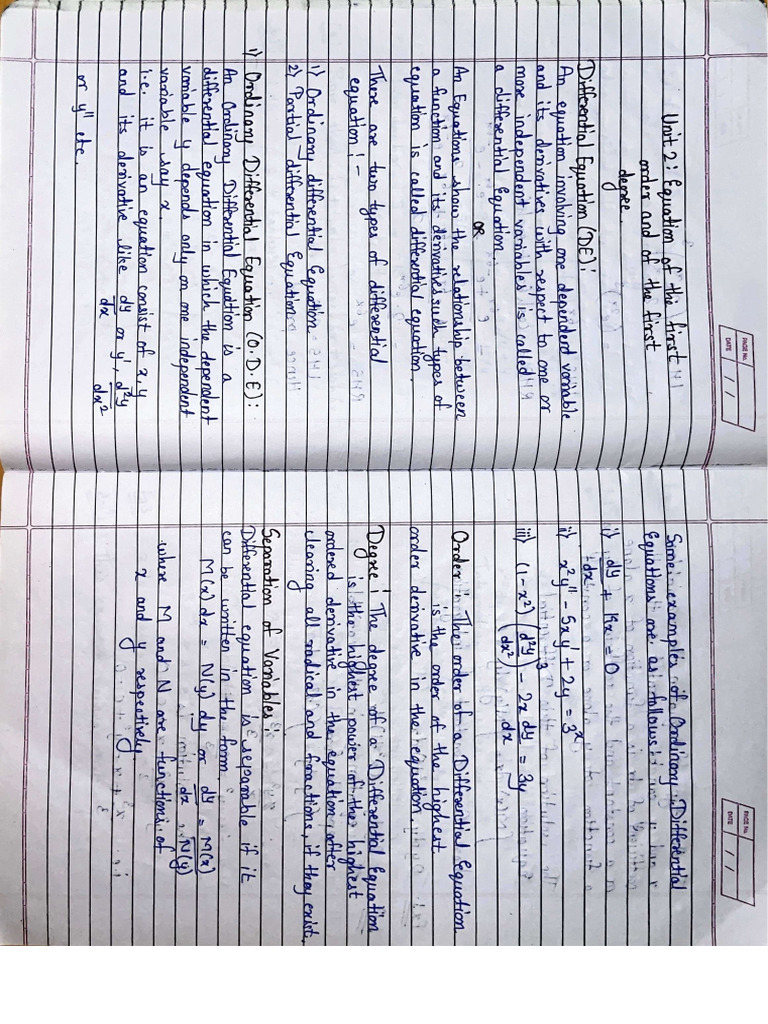 PAGE No.
DATE / /
Unit 2: Equation of the first
order and of the first
degree.
Differential Equation (DE):
An equation involving one dependent variable
and its derivatives with respect to one or
more independent variables is called
a differential Equation.
OR
An Equations show the relationship between
a function and its derivatives such types of
equation is called differential equation.
There are two types of differential
equation:-
1) Ordinary differential Equation
2) Partial differential Equation.
1) Ordinary Differential Equation (O.D.E):
An Ordinary Differential Equation is a
differential equation in which the dependent
variable y depends only on one independent
variable say x.
i.e. it is an equation consist of x, y
and its derivative like dy/dx or y', d²y/dx²
or y'' etc.
PAGE No.
DATE / /
Some examples of Ordinary Differential
Equations are as follows:
i) dy/dx + 19x = 0
ii) x²y'' - 5xy' + 2y = 3ˣ
iii) (1-x²) (d²y/dx²)³ - 2x dy/dx = 3y
Order: The order of a Differential Equation
is the order of the highest
order derivative in the equation.
Degree: The degree of a Differential Equation
is the highest power of the highest
ordered derivative in the equation after
clearing all radical and fractions, if they exist.
Separation of Variables:
Differential equation is separable if it
can be written in the form.
M(x) dx = N(y) dy or dy/dx = M(x)/N(y)
where M and N are functions of
x and y respectively.